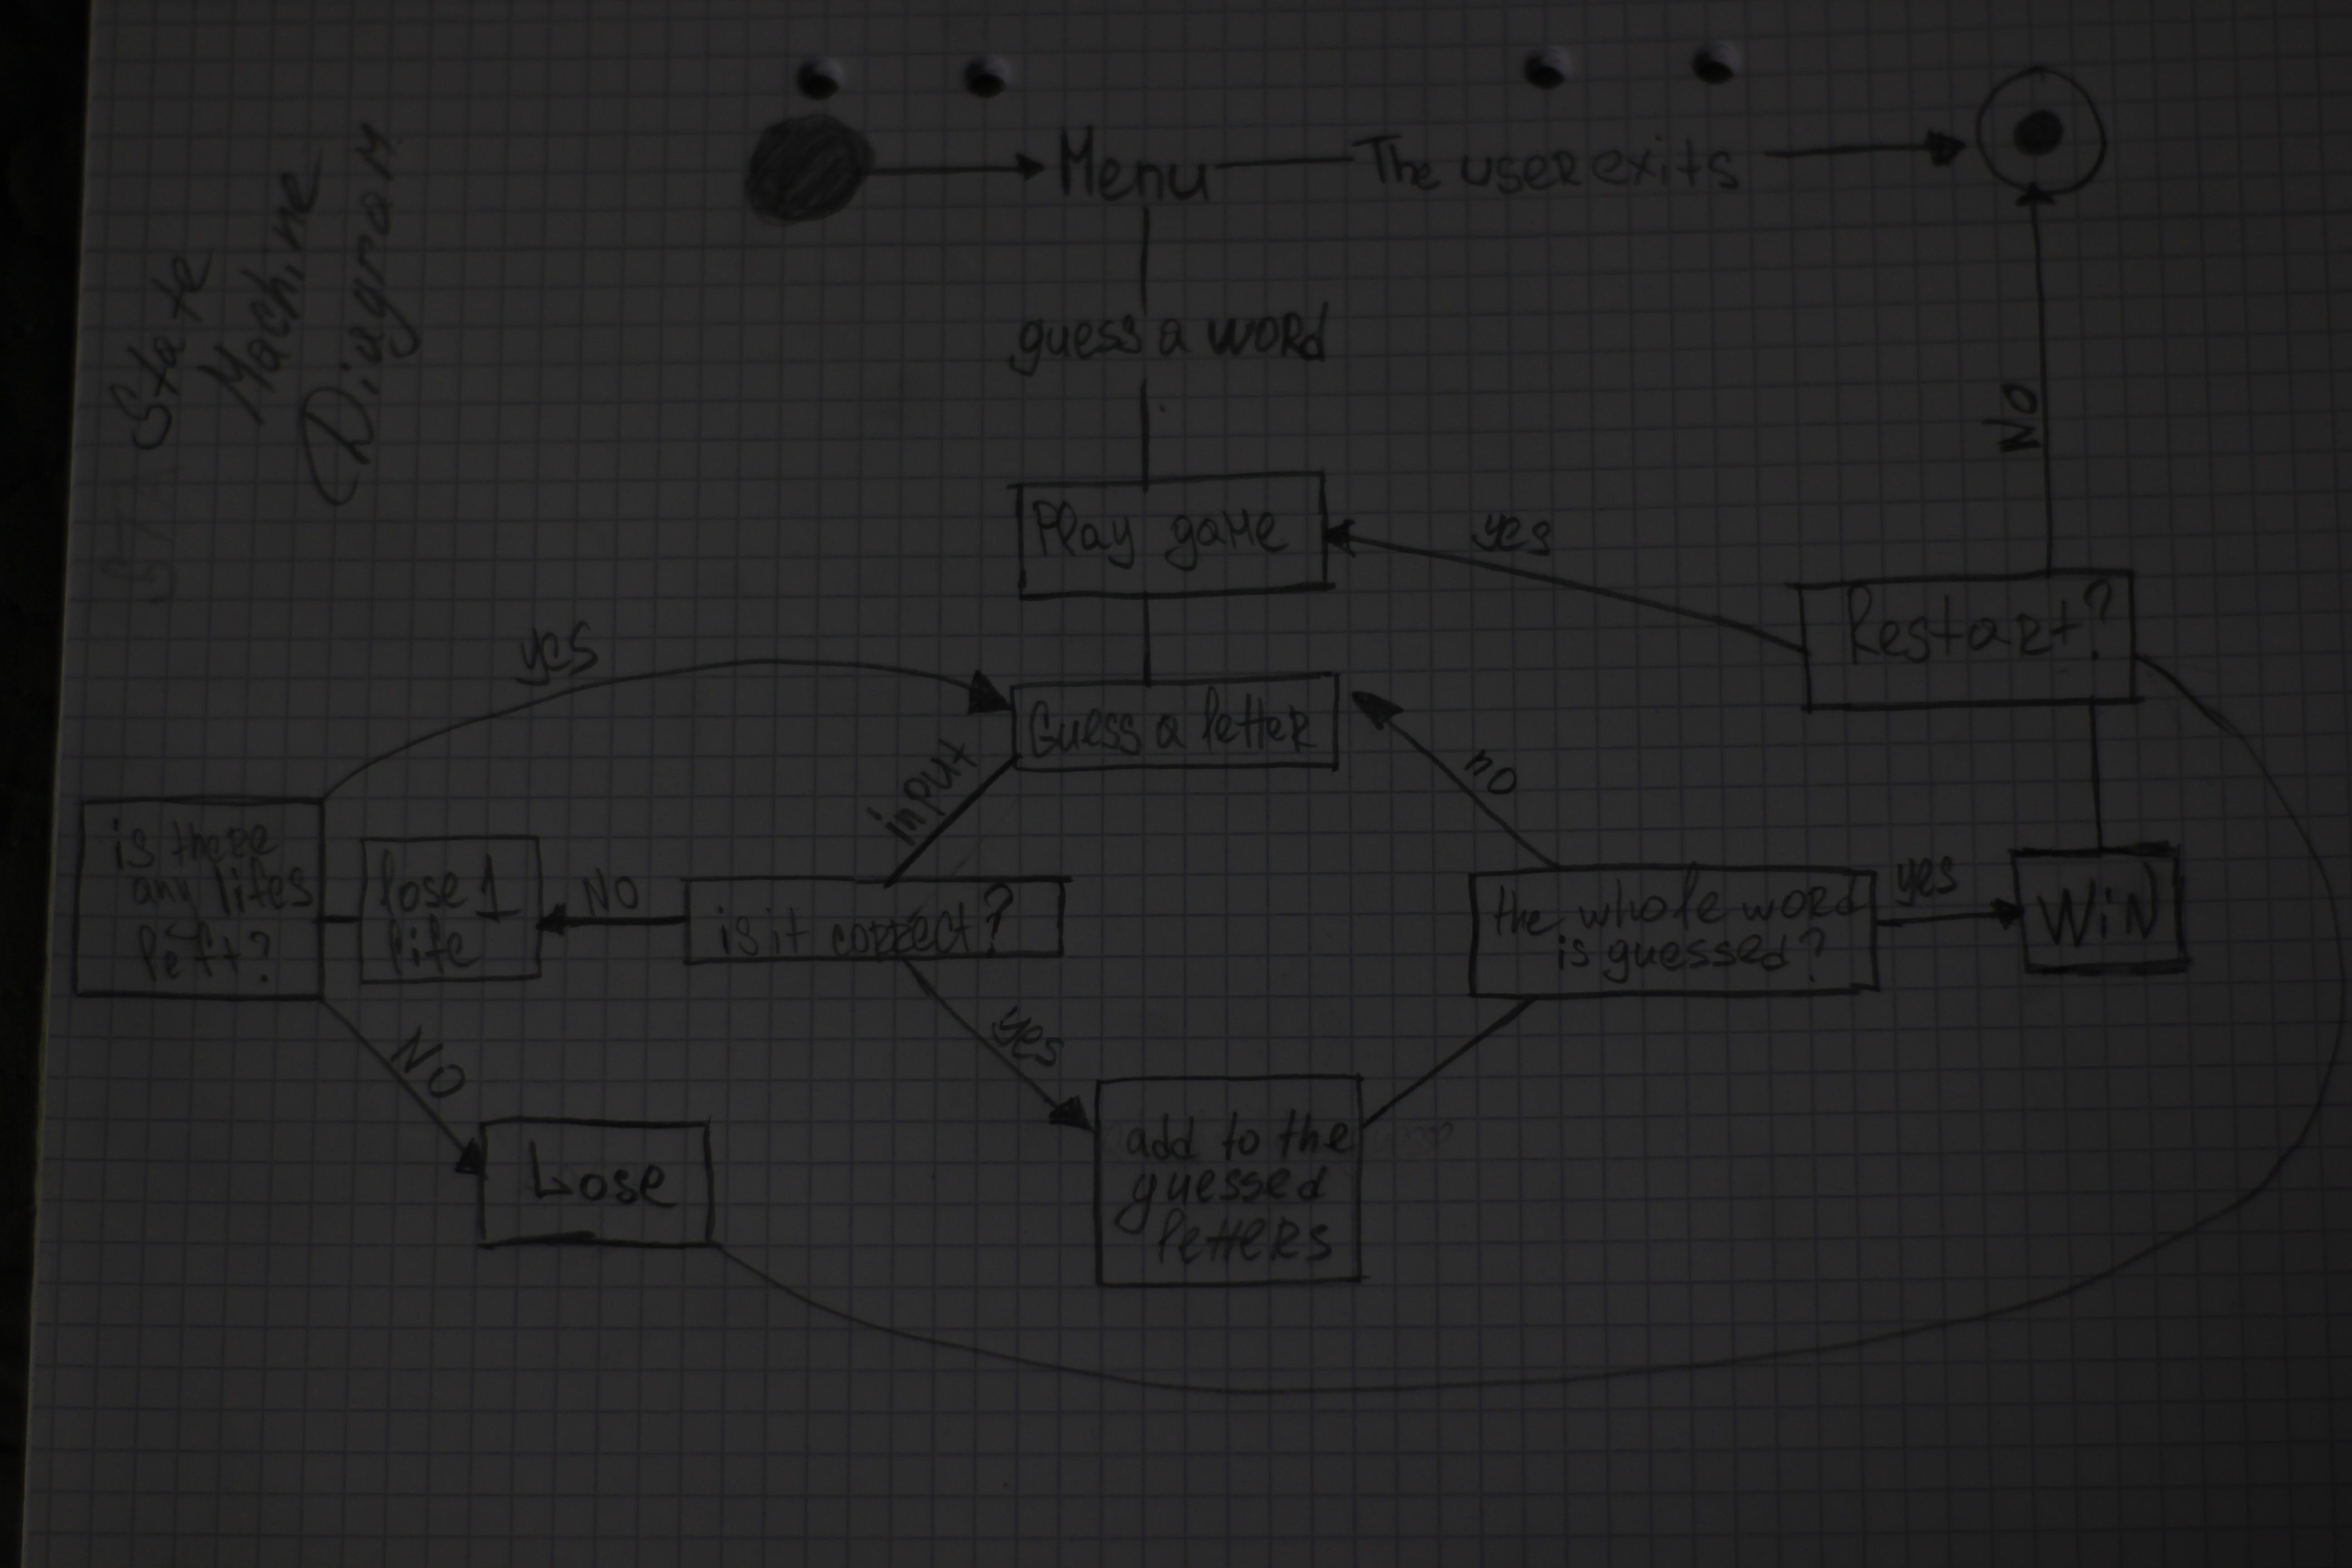 State
Machine
Diagram
Menu
The user exits
guess a word
NO
Play game
yes
Restart?
yes
Guess a letter
input
no
is there
any lifes
left?
lose 1
life
NO
is it correct?
the whole word
is guessed?
yes
WiN
NO
yes
Lose
add to the
guessed
letters